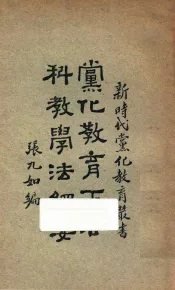 新時代黨化教育叢書
黨化教育下各
科教學法綱要
張九如編